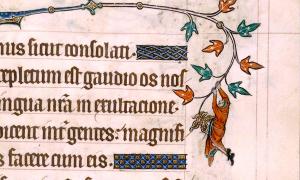 nus sicut consolati.
epletum est gaudio os nos
ingua nr̄a in exultacione.
icent int̄ gentes: magnifi
s facere cum eis.